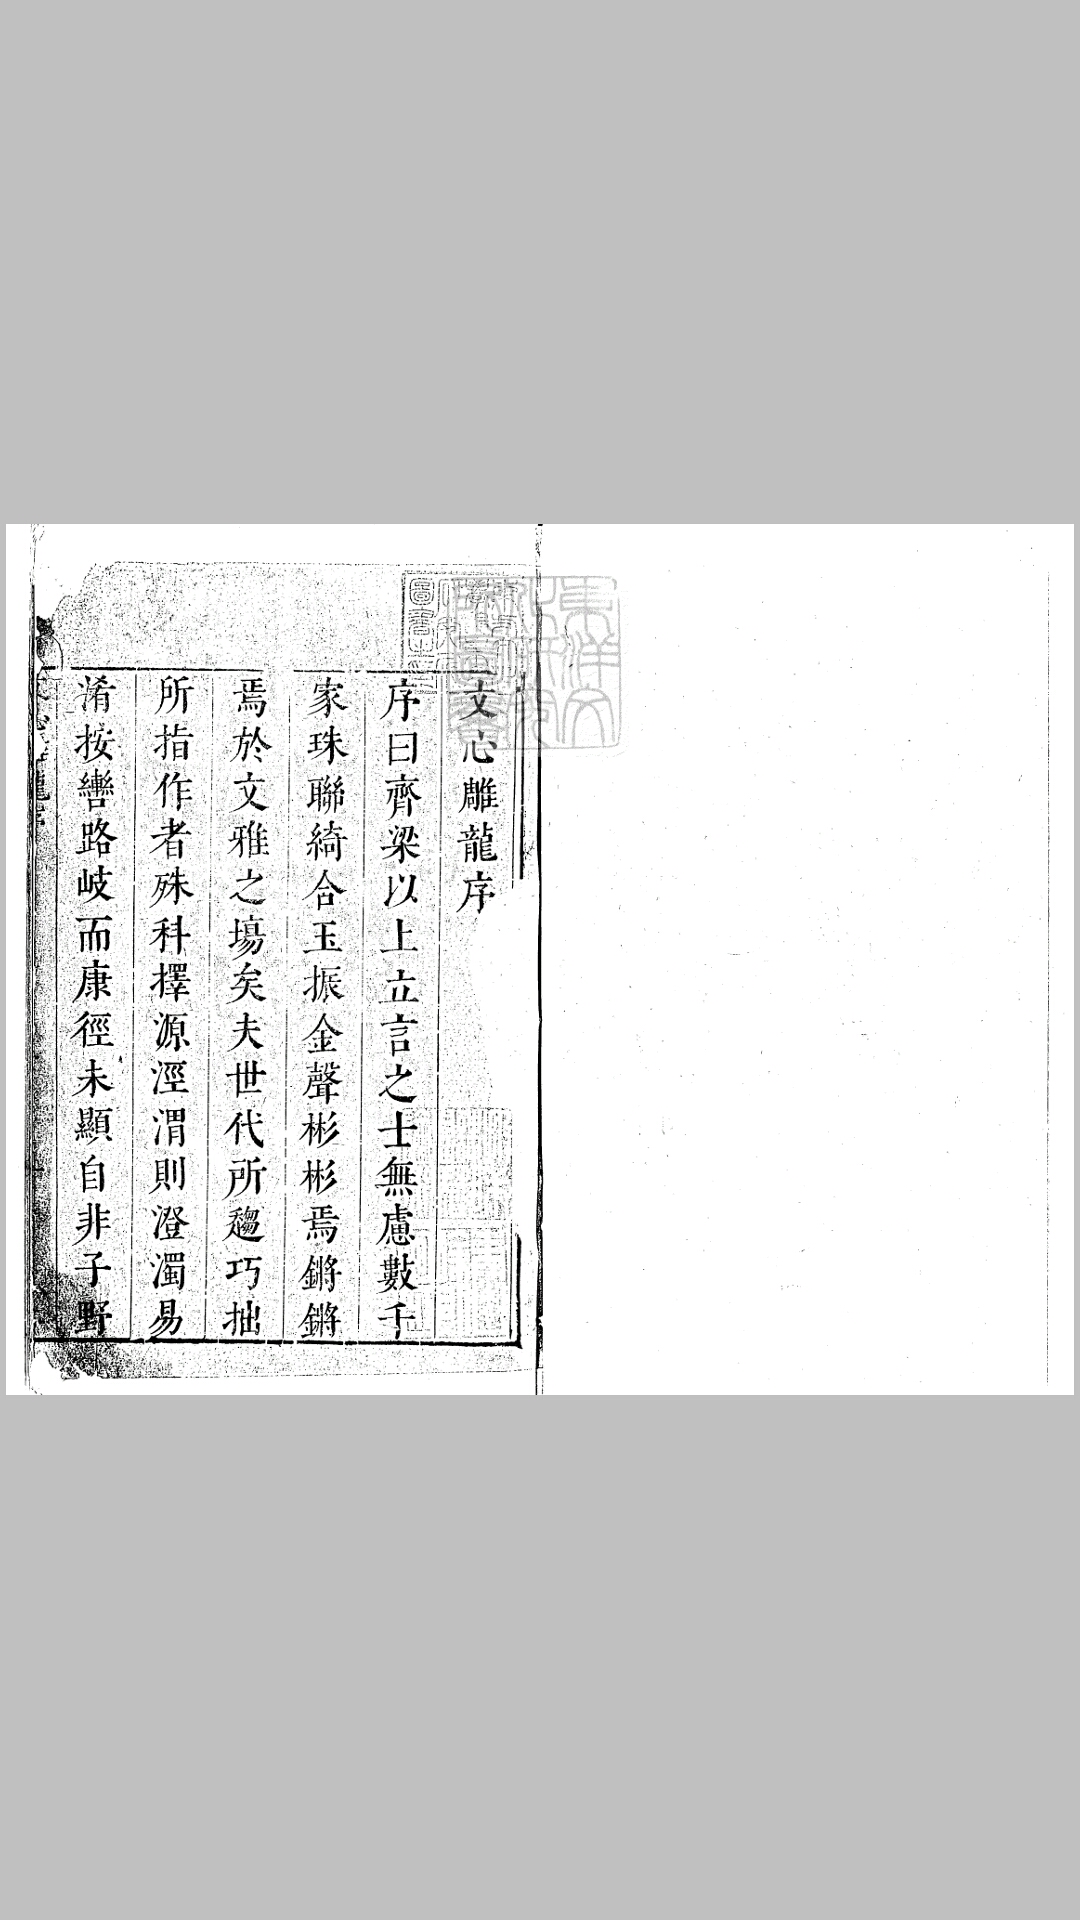 文心雕龍序
序曰齊梁以上立言之士無慮數千
家珠聯綺合玉振金聲彬彬焉鏘鏘
焉於文雅之場矣夫世代所趨巧拙
所指作者殊科擇源涇渭則澄濁易
淆按轡路岐而康徑未顯自非子野